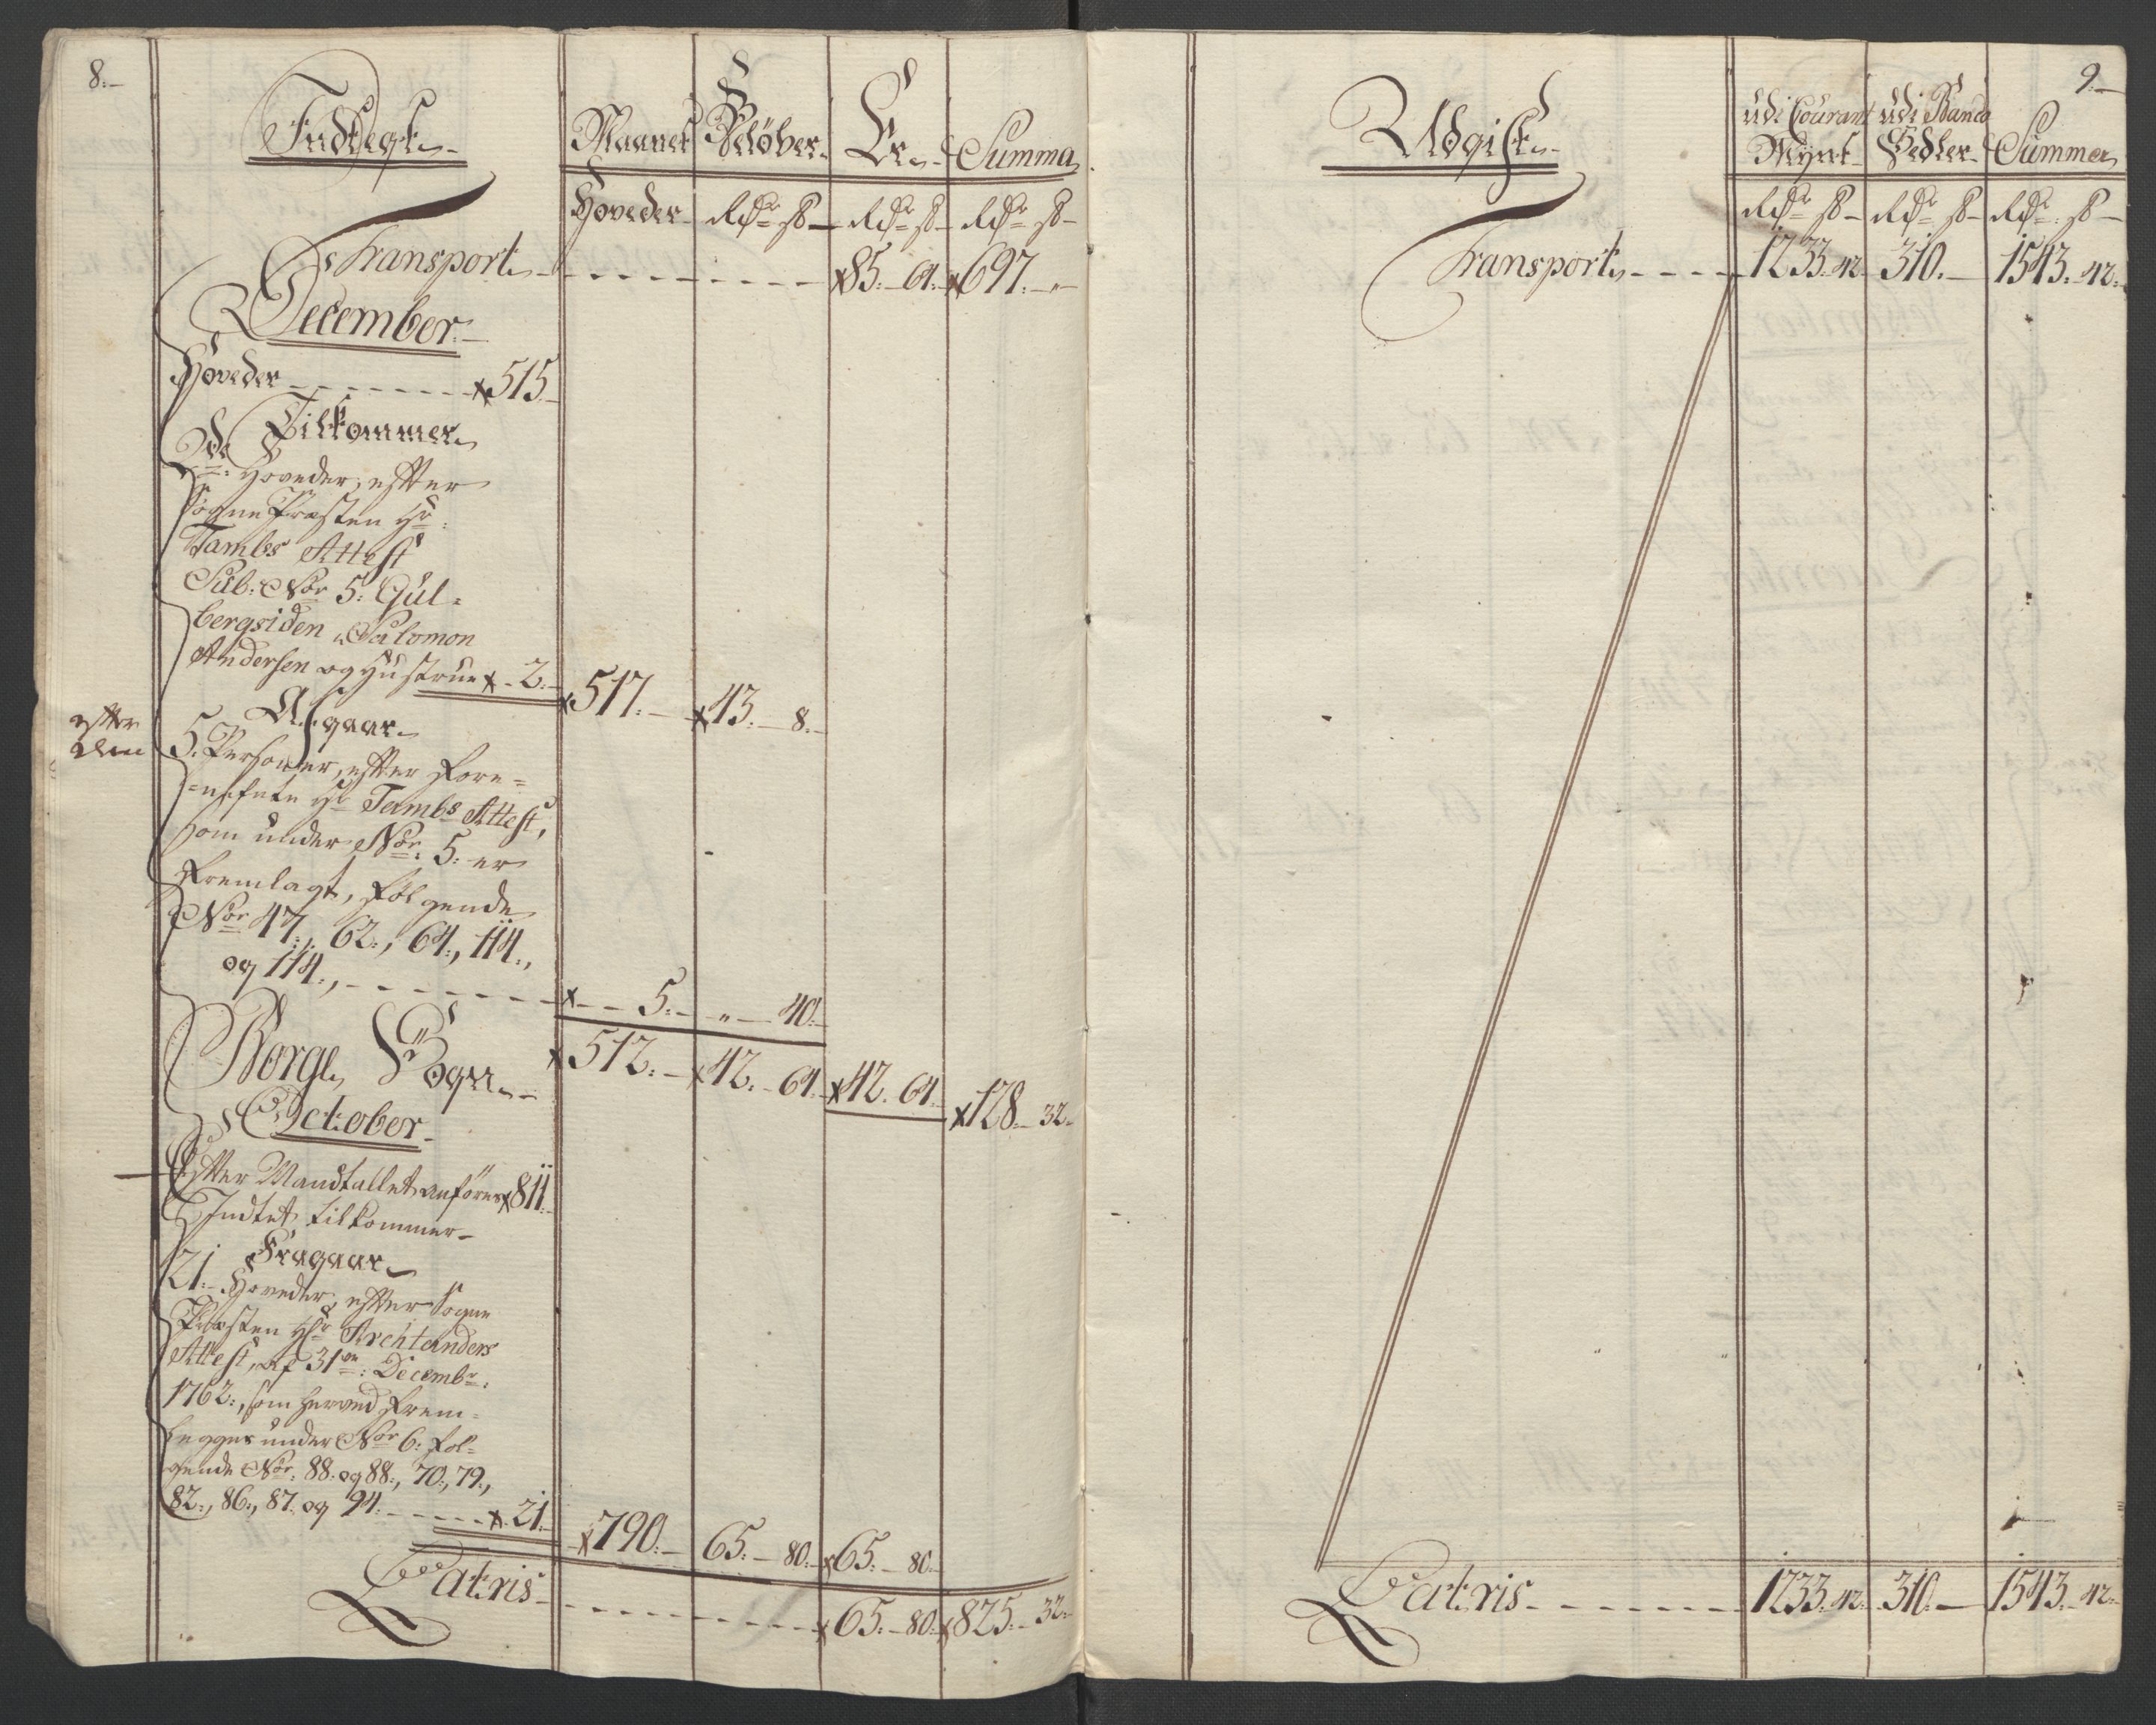 8.-
Indtegt
Maanet Beløber Er Summa
Hoveder rdr ß rdr ß rdr ß
Transport 85.- 64.- 697.- "
December.-
Hoveder x515.-
Tilkommer
Hoveder, efter
Sogne Præsten Hr:
Tambs Attest
Sub: No: 5. Gul=
bergsiden, Salomon
Andersen og Hustrue x-2.-
517.- x43.- 8.-
Afgaar
efter
5. Personer, efter Fore=
=nefnte Hr Tambs Attest,
som under Nor: 5: er
Fremlagt, Følgende
Nor 47., 62., 64., 114.,
og 114., x-- 5.- "- 40.-
x512.- x42.- 64.- x42. 64.- x128.- 32.-
Borge Sogn
October
Efter Mandtallet anføres x811.-
Indtet tilkommer
Fragaar
21.- Hoveder, efter Sogne
Præsten Hr Archtanders
Attest, af 31en: Decembr:
1762:, som herved Frem=
legges under Nor 6: Føl=
gende Nor: 88. og 88., 70., 79.,
82., 86., 87. og 94. x.21.-
x790.- 65.- 80.- x65.- 80.-
Latris x65.- 80. x825.- 32.-
9.-
Udgift
udi Courant udi Banco
Mynt Sedler Summer
rdr ß rdr ß rdr ß
Transport 1233. 42. 310.- 1543. 42.
Latris 1233. 42. 310.- 1543. 42.